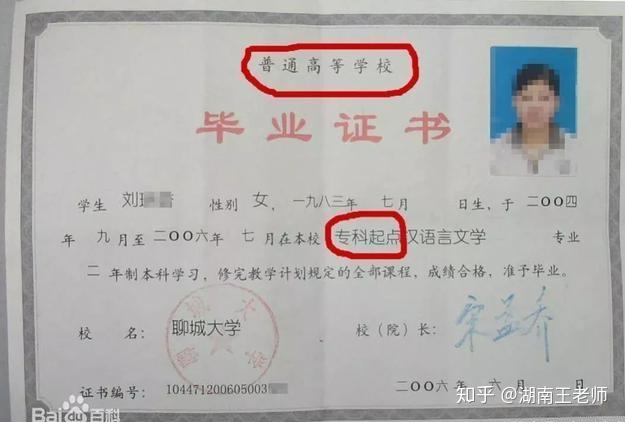 普通高等学校
毕业证书
学生 刘 性别 女, 一九八三年 七月 日生, 于 二〇〇四
年 九月至 二〇〇六年 七月在本校 专科起点汉语言文学 专业
二 年制本科学习, 修完教学计划规定的全部课程, 成绩合格, 准予毕业。
校 名: 聊城大学 校(院)长: 宋益乔
聊城大学
证书编号: 104471200605003 二〇〇六年 六月 日
Baidu百科
知乎 @湖南王老师